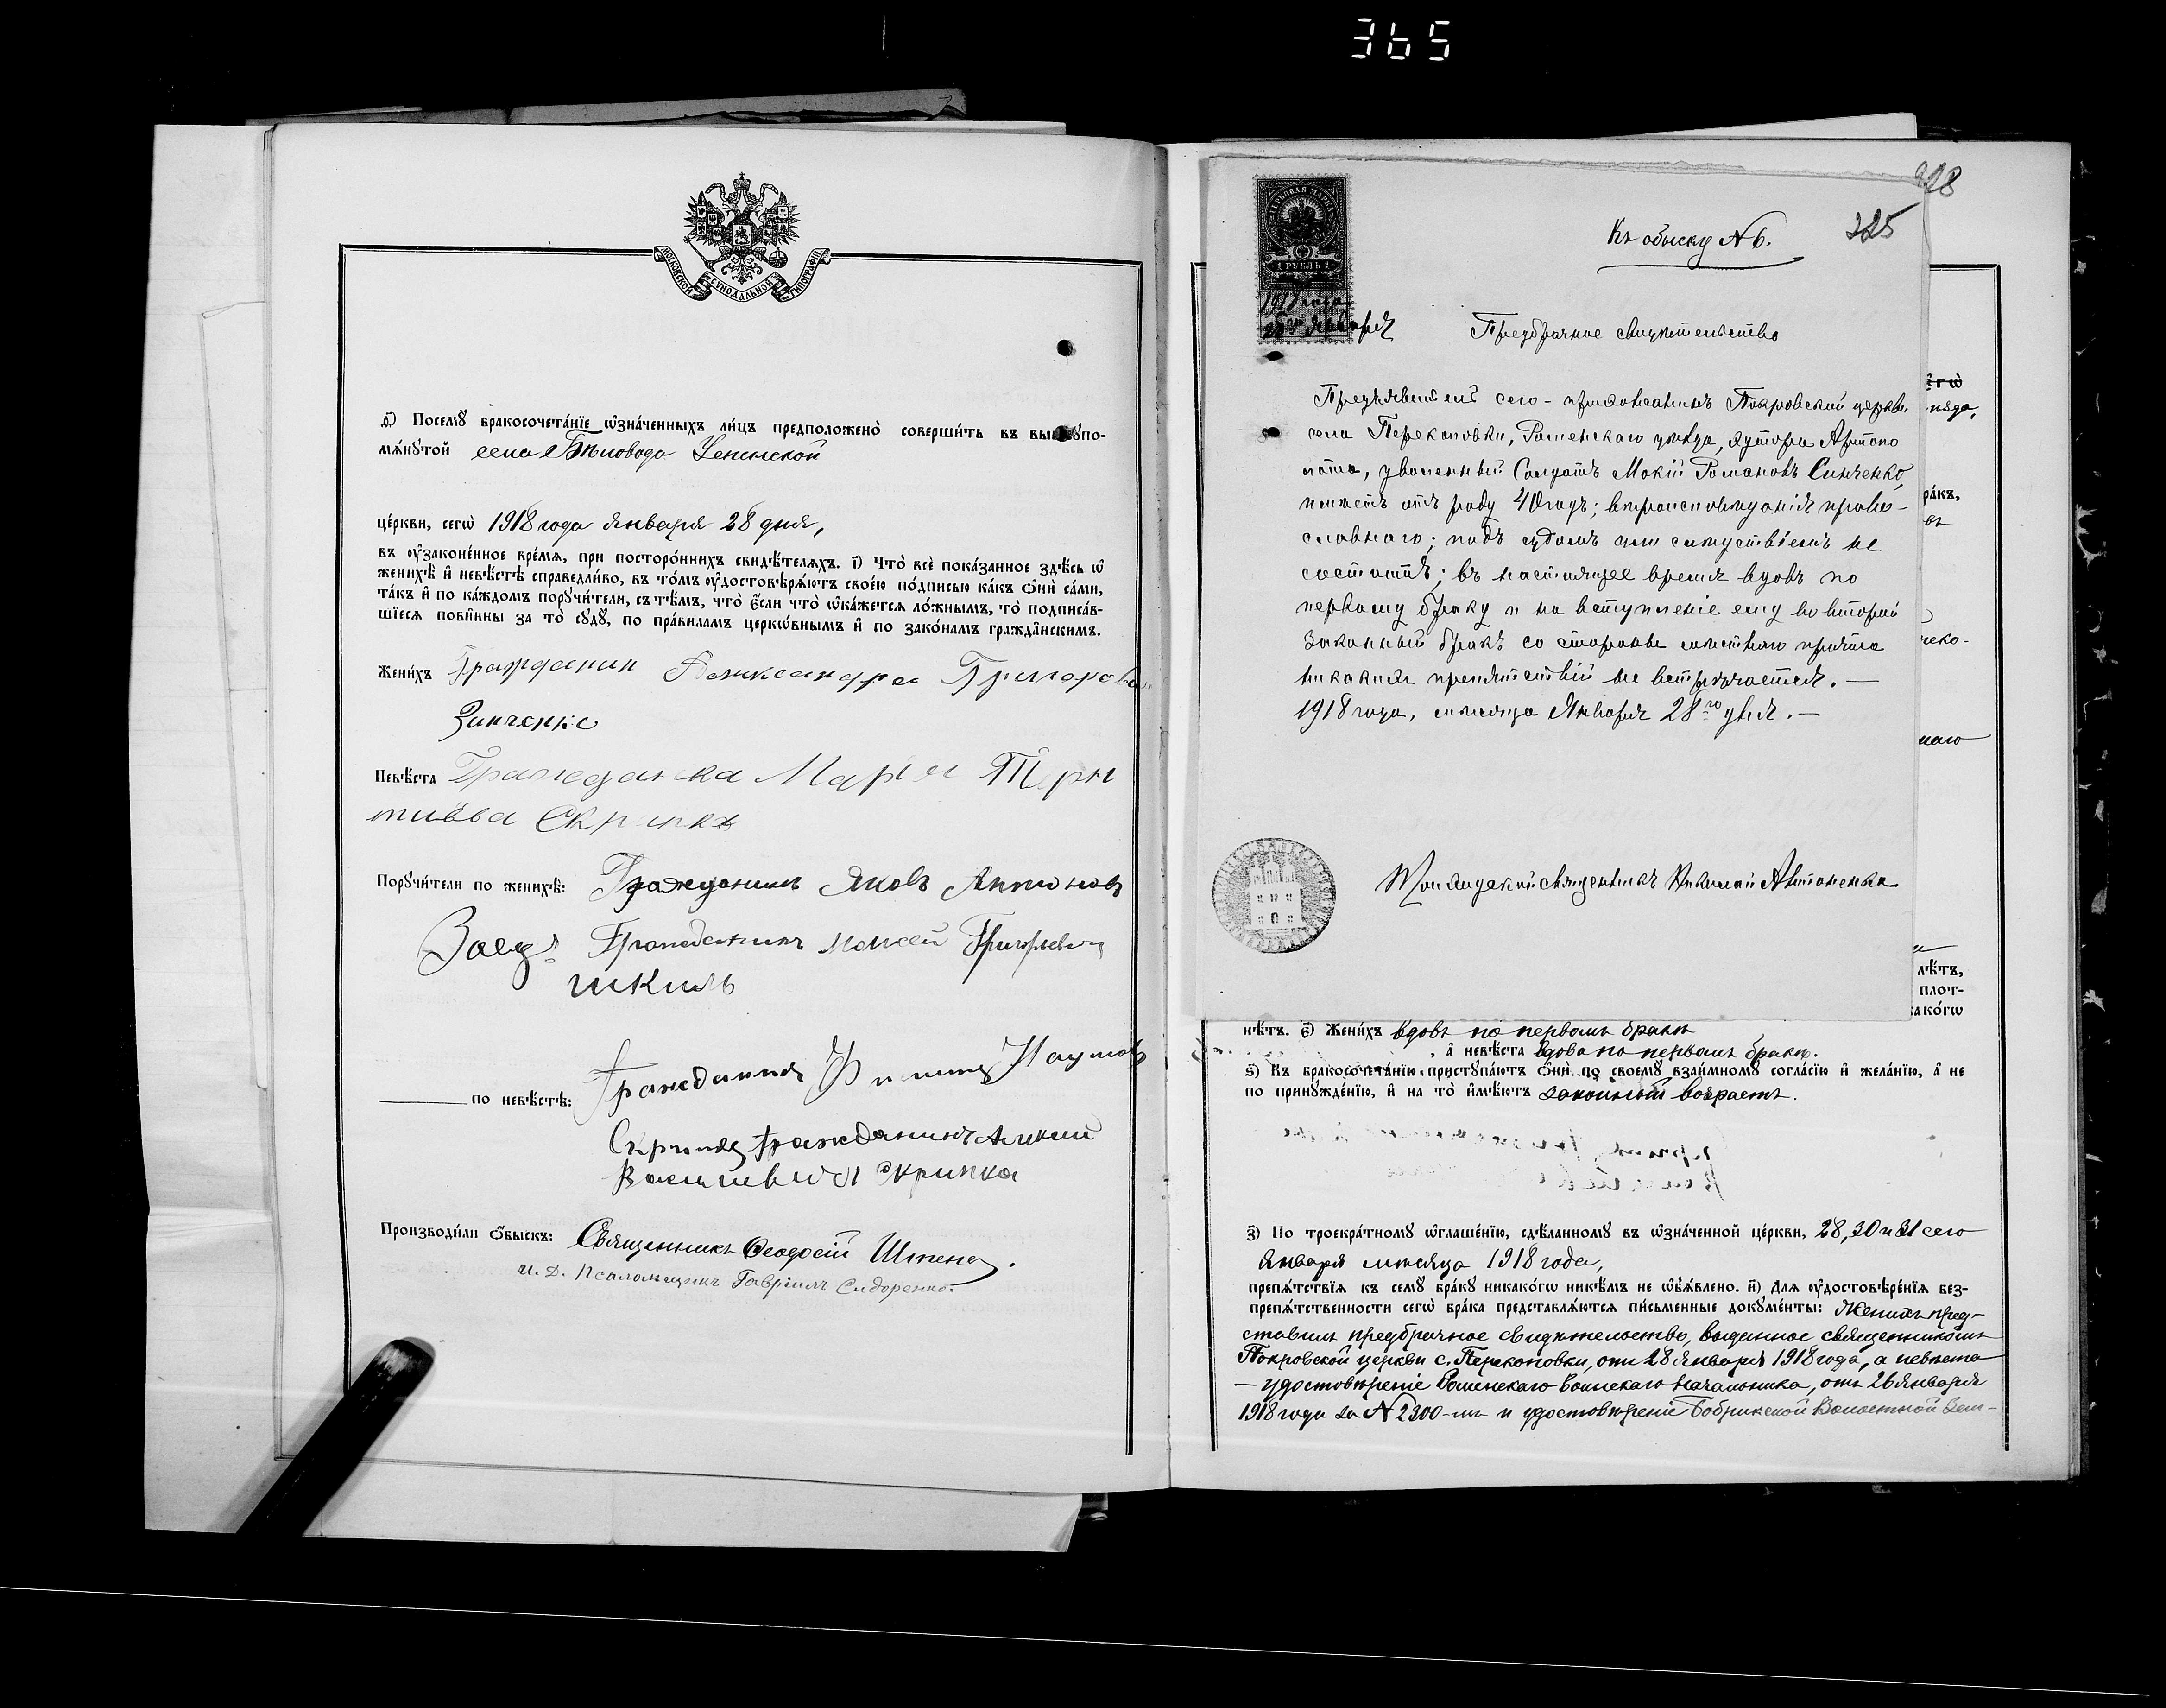 365
МОСКОВСКОЙ СѴНОДАЛЬНОЙ ТИПОГРАФІИ
д҃) Посемꙋ бракосочета́нїе ѡ҆зна́ченныхъ ли́цъ предположено̀ соверши́ть въ вышеꙋпо-
мѧ́нꙋтой села Бѣловода Успенской
це́ркви, сегѡ̀ 1918 года января 28 дня,
въ ᲂу҆зако́ненное вре́мѧ, при посторо́ннихъ свидѣ́телѧхъ. і҃) Что̀ всѐ пока́занное здѣ́сь ѡ҆
женихѣ̀ и҆ невѣ́стѣ справедли́во, въ то́мъ ᲂу҆достовѣрѧ́ютъ свое́ю по́дписью ка́къ ѻ҆нѝ са́ми,
та́къ и҆ по ка́ждомъ порꙋчи́тели, съ тѣ́мъ, что̀ є҆́сли что̀ ѡ҆ка́жется ло́жнымъ, то̀ подписа́в-
шїеся пови́нны за то̀ сꙋдꙋ̀, по пра́виламъ церко́внымъ и҆ по зако́намъ гражда́нскимъ.
Жени́хъ Гражданин Александра Григоровы
Зинченко
Невѣ́ста Гражданска Мария Тере
тиева Скрипка
Порꙋчи́тели по женихѣ̀: Гражданинъ Яковъ Антоновъ
Заец. Гражданинъ Моисей Григорьевич
шкиль
по невѣ́стѣ: Гражданинъ Филипъ Наумовъ
Скрипка гражданинъ
Васильевичъ Скрипка
Производи́ли ѻ҆́быскъ: Священникъ Ѳеодосій
и. д. Псаломщикъ Гавріилъ Сидоренко.
328
325
Къ обыску № 6.
ГЕРБОВАЯ МАРКА
1 РУБЛЬ 1
1918 года
28го января
Предбрачное свидѣтельство
Предъявитель сего - прихожанинъ Покровской церкви
села Перекоповки, Роменскаго уѣзда, хутора Артопо
лота, уволенный Солдатъ Мокій Романовъ Синченко,
имѣетъ отъ роду 40 годъ; вѣроисповѣданія право-
славнаго; подъ судомъ или слѣдствіемъ не
состоитъ; въ настоящее время вдовъ по
первому браку и на вступленіе ему во второй
законный бракъ со стороны мѣстнаго причта
никакихъ препятствій не встрѣчается. —
1918 года, мѣсяца Января 28го дня. —
Приходской священникъ Николай Антоненко
є҆гѡ̀
уѣзда,
ра́къ,
реко-
наго
лѣ́тъ,
плот-
ако́гѡ
нѣ́тъ. є҃) Жени́хъ вдовъ по первомъ бракѣ
, а҆ невѣ́ста вдова по первомъ бракѣ.
ѕ҃) Къ бракосочета́нїю пристꙋпа́ютъ ѻ҆нѝ по своемꙋ̀ взаи́мномꙋ согла́сїю и҆ жела́нїю, а҆ не
по принꙋжде́нїю, и҆ на то̀ и҆мѣ́ютъ законный возрастъ.
з҃) По троекра́тномꙋ ѡ҆глаше́нїю, сдѣ́ланномꙋ въ ѡ҆зна́ченной це́ркви, 28, 30 и 31 сего
Января мѣсяца 1918 года,
препѧ́тствїѧ къ семꙋ̀ бра́кꙋ никако́гѡ никѣ́мъ не ѡ҆б̾ѧ́влено. и҃) Для ᲂу҆достовѣре́нїѧ без-
препѧ́тственности сегѡ̀ бра́ка представлѧ́ются пи́сьменные докꙋме́нты: Женихъ пред-
ставилъ предбрачное свидѣтельство, выданное священникомъ
Покровской церкви с. Перекоповки, отъ 28 Января 1918 года, а невѣста
— удостовѣреніе Роменскаго Воинскаго Начальника, отъ 26 Января
1918 года за № 2300-мъ и удостовѣреніе Бобрикской Волостной Зем-